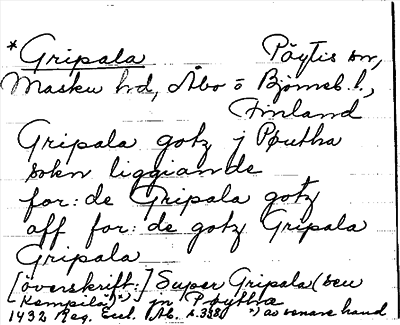 *Gripala Pöytis sn,
Masku hd, Åbo o Björneb. l.,
Finland
Gripala gotz j Pøutha
sokn liggiande
for: de Gripala gotz
aff for: de gotz Gripala
Gripala
[överskrift:] Super Gripala (seu
Kempila)*) jn Pøythæ
1432 Reg. Eccl. Ab. s. 338 *) av senare hand